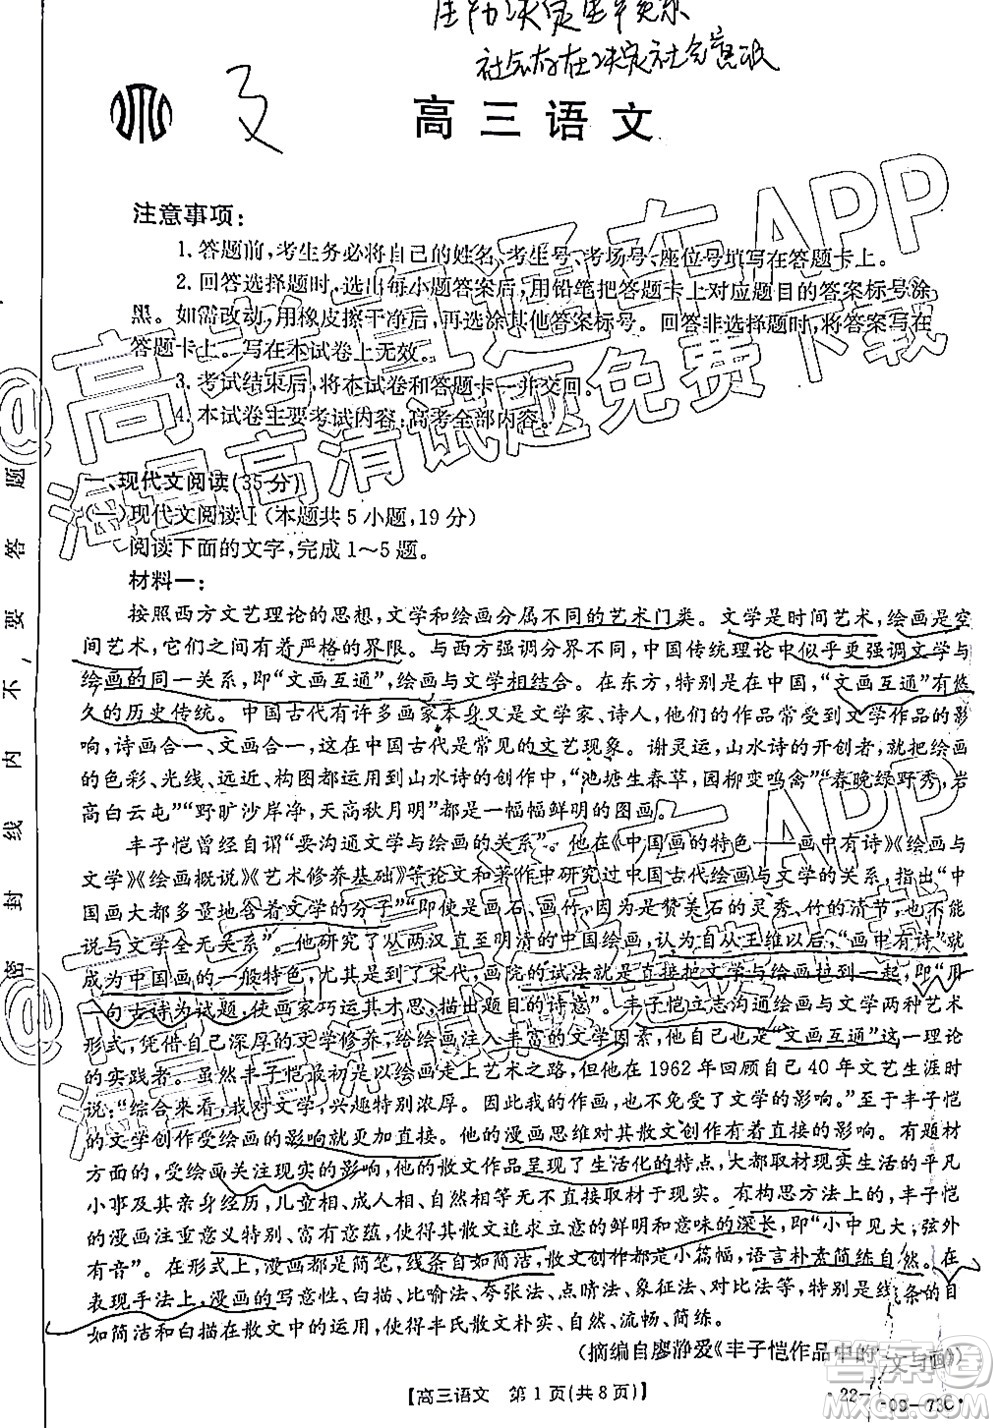 生产力决定生产关系
社会存在决定社会意识
高三语文
注意事项:
1.答题前,考生务必将自己的姓名、考生号、考场号、座位号填写在答题卡上。
2.回答选择题时,选出每小题答案后,用铅笔把答题卡上对应题目的答案标号涂
黑。如需改动,用橡皮擦干净后,再选涂其他答案标号。回答非选择题时,将答案写在
答题卡上。写在本试卷上无效。
3.考试结束后,将本试卷和答题卡一并交回。
4.本试卷主要考试内容:高考全部内容。
一、现代文阅读(35分)
(一)现代文阅读Ⅰ(本题共5小题,19分)
阅读下面的文字,完成1~5题。
材料一:
按照西方文艺理论的思想,文学和绘画分属不同的艺术门类。文学是时间艺术,绘画是空
间艺术,它们之间有着严格的界限。与西方强调分界不同,中国传统理论中似乎更强调文学与
绘画的同一关系,即“文画互通”,绘画与文学相结合。在东方,特别是在中国,“文画互通”有悠
久的历史传统。中国古代有许多画家本身又是文学家、诗人,他们的作品常受到文学作品的影
响,诗画合一、文画合一,这在中国古代是常见的文艺现象。谢灵运,山水诗的开创者,就把绘画
的色彩、光线、远近、构图都运用到山水诗的创作中,“池塘生春草,园柳变鸣禽”“春晚绿野秀,岩
高白云屯”“野旷沙岸净,天高秋月明”都是一幅幅鲜明的图画。
丰子恺曾经自谓“要沟通文学与绘画的关系”。他在《中国画的特色——画中有诗》《绘画与
文学》《绘画概说》《艺术修养基础》等论文和著作中研究过中国古代绘画与文学的关系,指出“中
国画大都多量地含着文学的分子”“即使是画石、画竹,因为是赞美石的灵秀、竹的清节,也不能
说与文学全无关系”。他研究了从两汉直到明清的中国绘画,认为自从王维以后,“画中有诗”就
成为中国画的一般特色,尤其是到了宋代,画院的试法就是直接把文学与绘画拉到一起,即“用
一句古诗为试题,使画家巧运其才思,描出题目的诗意”。丰子恺立志沟通绘画与文学两种艺术
形式,凭借自己深厚的文学修养,给绘画注入丰富的文学因素,他自己也是“文画互通”这一理论
的实践者。虽然丰子恺最初是以绘画走上艺术之路,但他在1962年回顾自己40年文艺生涯时
说:“综合来看,我对文学,兴趣特别浓厚。因此我的作画,也不免受了文学的影响。”至于丰子恺
的文学创作受绘画的影响就更加直接。他的漫画思维对其散文创作有着直接的影响。在题材
方面,受绘画关注现实的影响,他的散文作品呈现了生活化的特点,大都取材于生活的平凡
小事及其亲身经历,儿童相、成人相、自然相等无不涉及。在构思方法上,丰子恺
作画注重意义特别、富有意蕴,使得其散文追求立意的鲜明和意味的深长,即“小中见大,弦外
有音”。在形式上,漫画都是小幅,线条自如简洁,散文创作都是小篇幅,语言朴素简练自然。在
表现手法上,漫画的写意性、白描、比喻、夸张法、点睛法、象征法、对比法等,特别是线条的自
如简洁和白描在散文中的运用,使得丰氏散文朴实、自然、流畅、简练。
(摘编自廖静爱《丰子恺作品中的“文与画”》)
【高三语文 第1页(共8页)】
密封线内不要答题
@高考直通车APP
海量高清试题免费下载
@高考直通车APP
海量高清试题免费下载